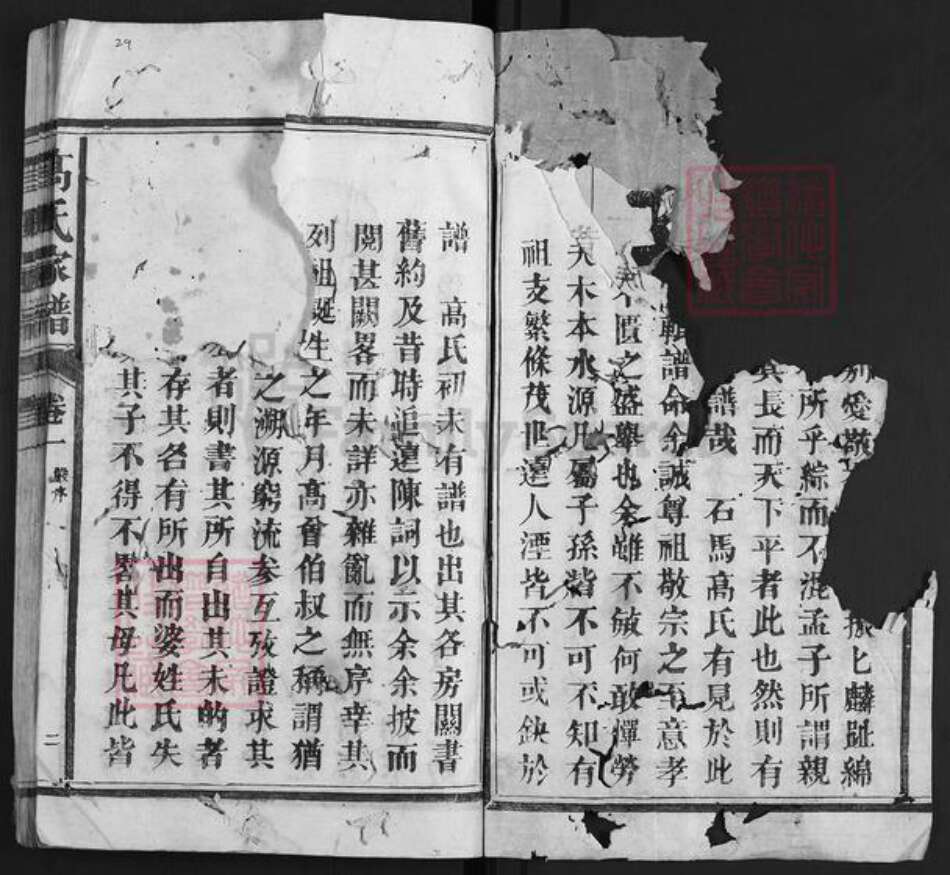 別愛敬振匕麟趾綿
所乎綜而不混孟子所謂親
其長而天下平者此也然則有
譜哉 石馬高氏有見於此
輯譜命余誠尊祖敬宗之至意孝
不匱之盛舉也余雖不敏何敢憚勞
夫木本水源凡屬子孫皆不可不知有
祖支繁條茂世遠人湮皆不可或缺於
譜 高氏初未有譜也出其各房關書
舊約及昔時追遠陳詞以示余余披而
閱甚闕畧而未詳亦雜亂而無序幸其
列祖誕生之年月高曾伯叔之稱謂猶
之溯源窮流參互攷證求其
者則書其所自出其未的者
存其名有所出而婆姓氏失
其子不得不畧其母凡此皆
高氏家譜
卷一
二
29